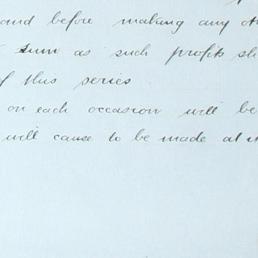 and before making any
sum as such profits
of this series
on each occasion will be
will cause to be made at